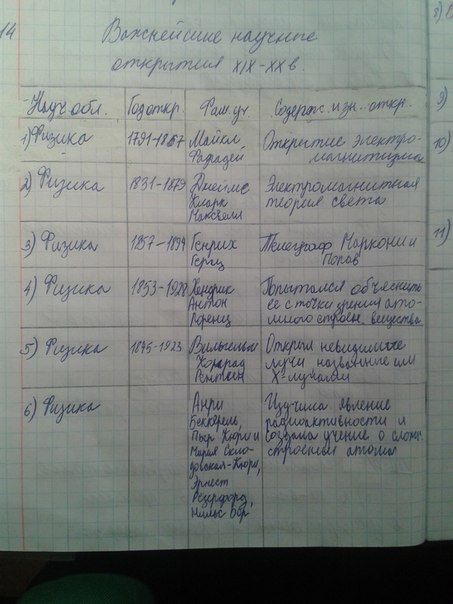 14
Важнейшие научные
открытия XIX-XX в.
Науч обл. Год откр. Фам. уч. Содерж. изн. откр.
1) Физика 1791-1867 Майкл Открытие электро-
Фарадей магнитизма
2) Физика 1831-1879 Джеймс Электромагнитная
Кларк теория света
Максвелл
3) Физика 1857-1894 Генрих Телеграф Маркони и
Герц Попов
4) Физика 1853-1928 Хендрик Попытался объяснить
Антон ее с точки зрения ато-
Лоренц много строен. вещества
5) Физика 1845-1923 Вильгельм Открыл невидимые
Конрад лучи названные им
Рентген X-лучами
6) Физика Анри Изучила явление
Беккерель, радиоактивности и
Пьер Кюри и создала учение о сложн.
Мария Скло- строении атома
довская-Кюри,
Эрнест
Резерфорд,
Нильс Бор
8)
9)
10)
11)